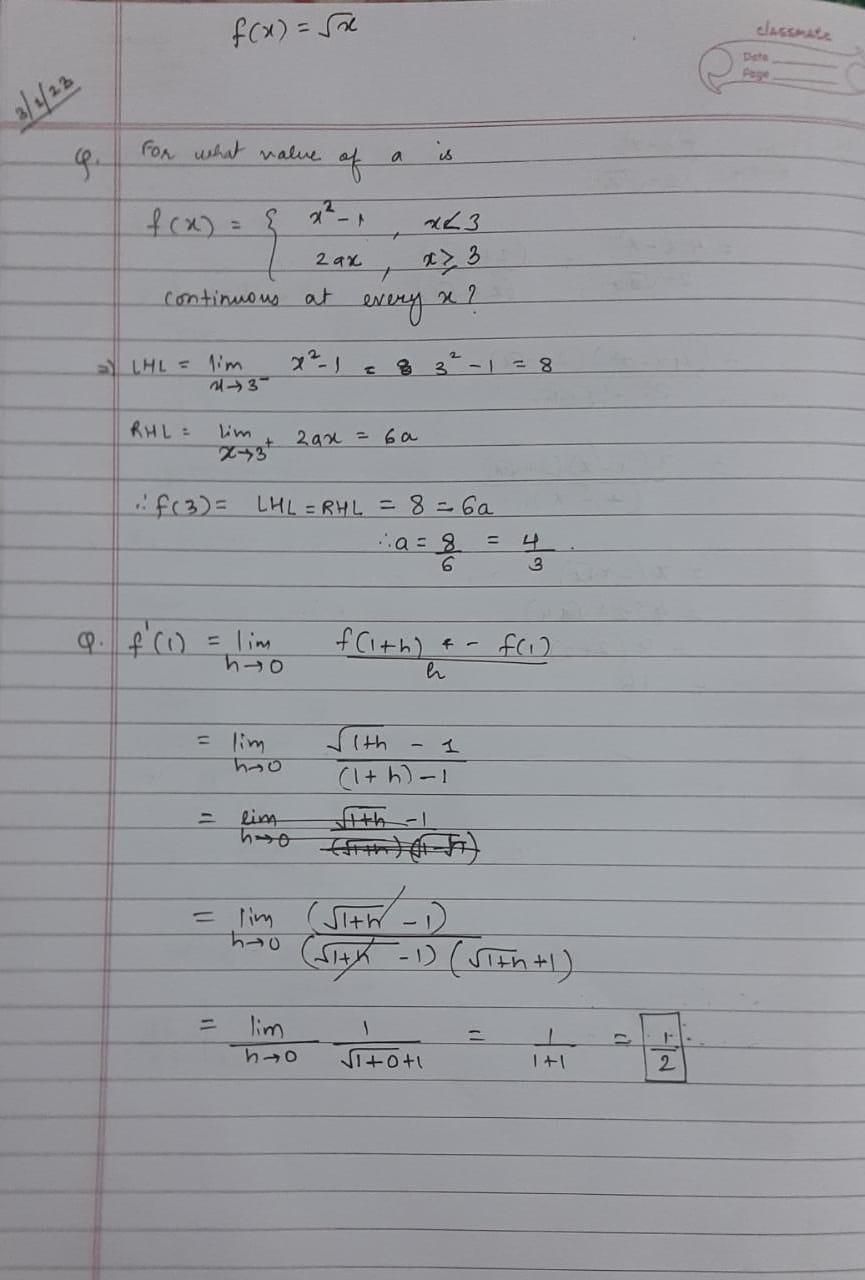 f(x) = √x
classmate
Date
Page
3/1/23
Q. For what value of a is
f(x) = { x² - 1 , x < 3
2ax , x ≥ 3
continuous at every x?
⇒ LHL = lim x→3⁻ x² - 1 = 3² - 1 = 8
RHL = lim x→3⁺ 2ax = 6a
∴ f(3) = LHL = RHL = 8 = 6a
∴ a = 8/6 = 4/3.
Q. f'(1) = lim h→0 f(1+h) - f(1) / h
= lim h→0 √1+h - 1 / (1+h) - 1
= lim h→0 √1+h - 1
= lim h→0 (√1+h - 1) / (√1+h - 1) (√1+h + 1)
= lim h→0 1 / √1+0 + 1 = 1 / 1+1 = 1/2